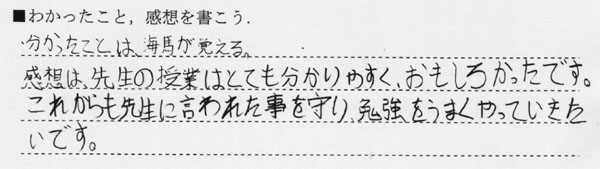 ■わかったこと，感想を書こう．
分かったことは、海馬が覚える。
感想は、先生の授業はとても分かりやすく、おもしろかったです。
これからも先生に言われた事を守り、勉強をうまくやっていきた
いです。